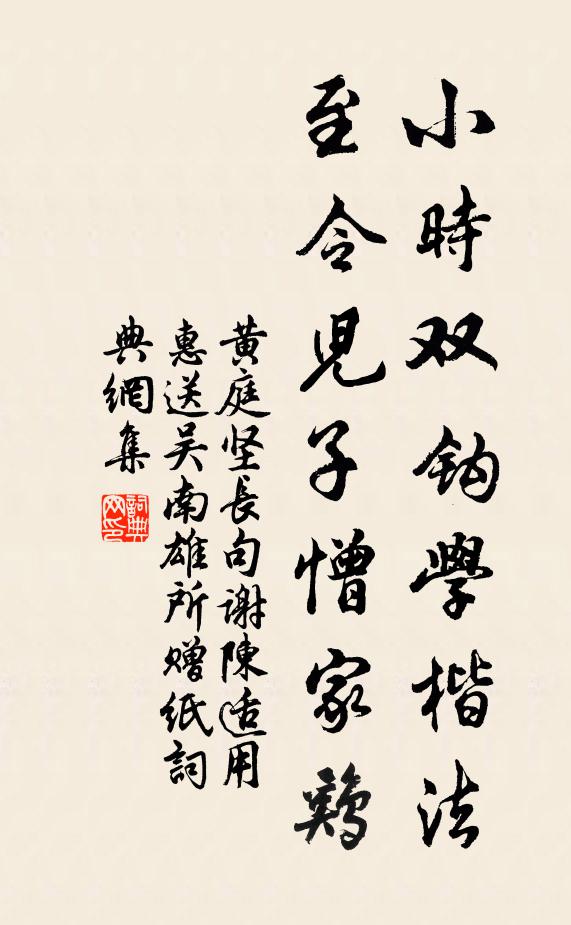 小時双鈎學楷法
至今児子憎家鷄
黄庭坚長句謝陳适用
惠送吴南雄所赠纸詞
典網集
詞典
网印